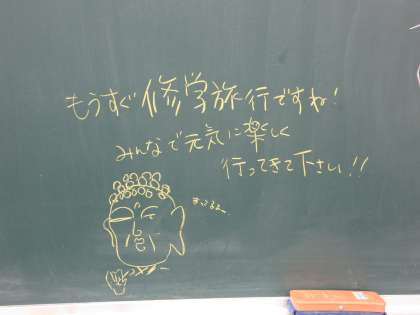 もうすぐ修学旅行ですね!
みんなで元気に楽しく
行ってきて下さい!!
まってるよー